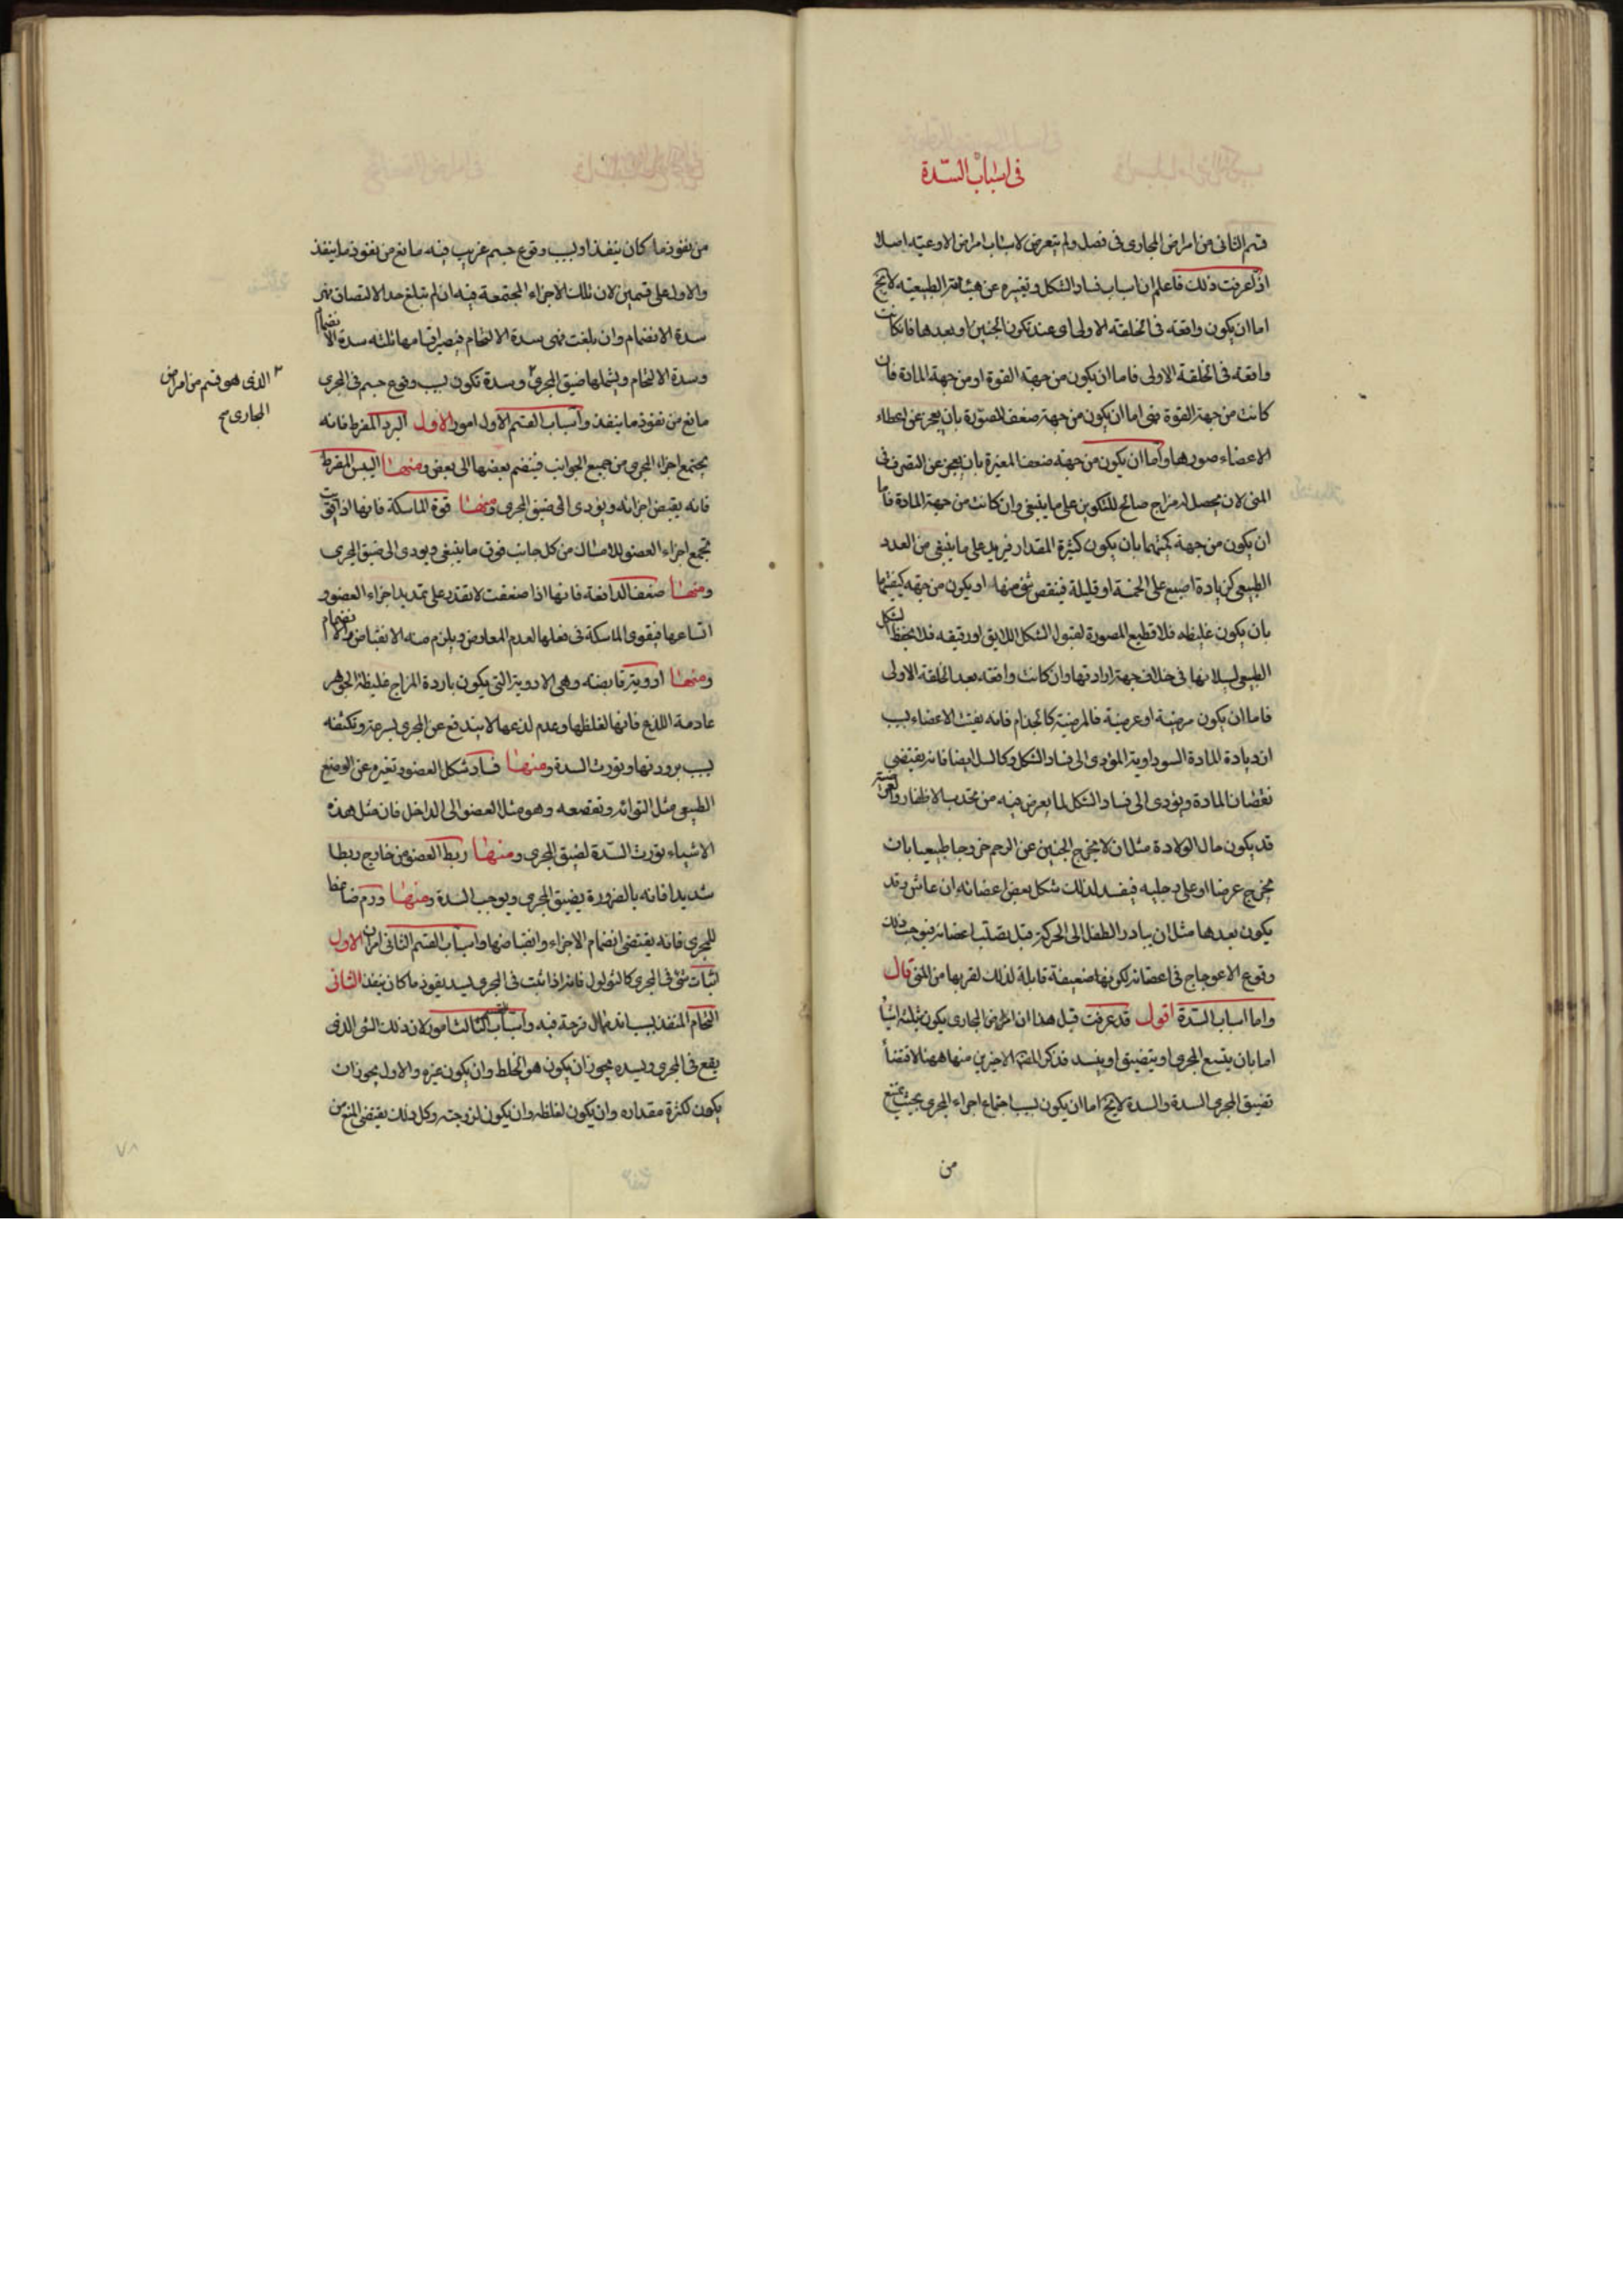 فى اسباب السدة
قسم الثانى من امراض المجارى فى فصل ولم يتعرض لاسباب امراض الاوعية اصلا
اذا عرفت ذلك فاعلم ان اسباب فساد الشكل وتغيره عن هيئاته الطبيعية لا يخ
اما ان يكون واقعة فى الخلقة الاولى اى عند تكون الجنين او بعدها فان كانت
واقعة فى الخلقة الاولى فاما ان يكون من جهة القوة او من جهة المادة فان
كانت من جهة القوة فهى اما ان يكون من جهة ضعف المصورة بان يعجز عن اعطاء
الاعضاء صورها واما ان يكون من جهة ضعف المغيرة بان يعجز عن التصرف فى
المنى لان يحصل له مزاج صالح للتكوين على ما ينبغى وان كانت من جهة المادة فاما
ان يكون من جهة كميتها بان يكون كثيرة المقدار فيزيد على ما ينبغى من العدد
الطبيعى كزيادة اصبع على الخمسة او قليلة فينقص شئ منها او يكون من جهة كيفيتها
بان يكون غليظه فلا تطيع المصورة لقبول الشكل اللايق او رقيقه فلا يحفظ الشكل
الطبيعى لسيلانها فى خلاف جهة ارادتها وان كانت واقعة بعد الخلقة الاولى
فاما ان يكون مرضية او عرضية فالمرضية كالجذام فانه يفسد الاعضاء بسبب
ازدياده المادة السوداوية المؤدى الى فساد الشكل وكالسل ايضا فانه يقتضى
نقصان المادة ويؤدى الى فساد الشكل لما يعرض فيه من تحدب الاظفار والعرضية
قد يكون حال الولادة مثل ان لا يخرج الجنين عن الرحم خروجا طبيعيا بان
يخرج عرضا او على رجليه فيفسد لذلك شكل بعض اعضائه ان عاش وقد
يكون بعدها مثل ان يبادر الطفل الى الحركة قبل تصلب اعضائه فيوجب ذلك
وقوع الاعوجاج فى اعضائه لكونها ضعيفة قابلة لذلك لقربها من المنى قال
واما اسباب السدة اقول قد عرفت قبل هذا ان امراض المجارى يكون بثلثة اشياء
اما بان يتسع المجرى او يتضيق او ينسد فذكر المص الاخيرين منها ههنا لاقتضاء
تضيق المجرى السدة والسدة لا يخ اما ان يكون بسبب اجتماع اجزاء المجرى بحيث يمنع
من
من نفوذ ما كان ينفذ او بسبب وقوع جسم غريب فيه مانع من نفوذ ما ينفذ
والاول على قسمين لان تلك الاجزاء المجتمعة فيه ان لم تبلغ حد الالتصاق فهى
سدة الانضمام وان بلغت فهى سدة الالتحام فيصير اقسامها ثلثه سدة الانضمام
وسدة الالتحام ويشملها ضيق المجرى وسدة تكون بسبب وقوع جسم فى المجرى
الذى هو قسم من امراض
المجارى صح
مانع من نفوذ ما ينفذ واسباب القسم الاول امور الاول البرد المفرط فانه
يجتمع اجزاء المجرى من جميع الجوانب فينضم بعضها الى بعض ومنها اليبس المفرط
فانه يقبض اجزائه ويؤدى الى ضيق المجرى ومنها قوة الماسكة فانها اذا قويت
تجمع اجزاء العضو للامساك من كل جانب فوق ما ينبغى ويودى الى ضيق المجرى
ومنها ضعف الدافعة فانها اذا ضعفت لا تقدر على تمديد اجزاء العضو و
اتساعها فيقوى الماسكة فى فعلها لعدم المعارض ويلزم منه الانقباض والانضمام
ومنها ادوية قابضه وهى الادوية التى يكون باردة المزاج غليظة الجوهر
عادمة اللذع فانها لغلظها وعدم لذعها لا يندفع عن المجرى بسرعة وتكثفه
بسبب برودتها ويورث السدة ومنها فساد شكل العضو وتغيره عن الوضع
الطبيعى مثل التوائه وتقصعه وهو مثل العضو الى الداخل فان مثل هذه
الاشياء تورث السدة لضيق المجرى ومنها ربط العضو من خارج ربطا
شديدا فانه بالضرورة يضيق المجرى ويوجب السدة ومنها ورم ضاغط
للمجرى فانه يقتضى انضمام الاجزاء وانقباضها واسباب القسم الثانى امران الاول
اثبات شئ فى المجرى كالثولول فانه اذا نبت فى المجرى ليسد نفوذ ما كان ينفذ الثانى
التحام المنفذ بسبب اندمال قرحة فيه واسباب الثالث امور لان ذلك الشى الذى
يقع فى المجرى ويسده يجوز ان يكون هو الخلط وان يكون غيره والاول يجوز ان
يكون لكثرة مقداره وان يكون لغلظه وان يكون لزوجته وكل ذلك يقتضى المنع من
٧٨